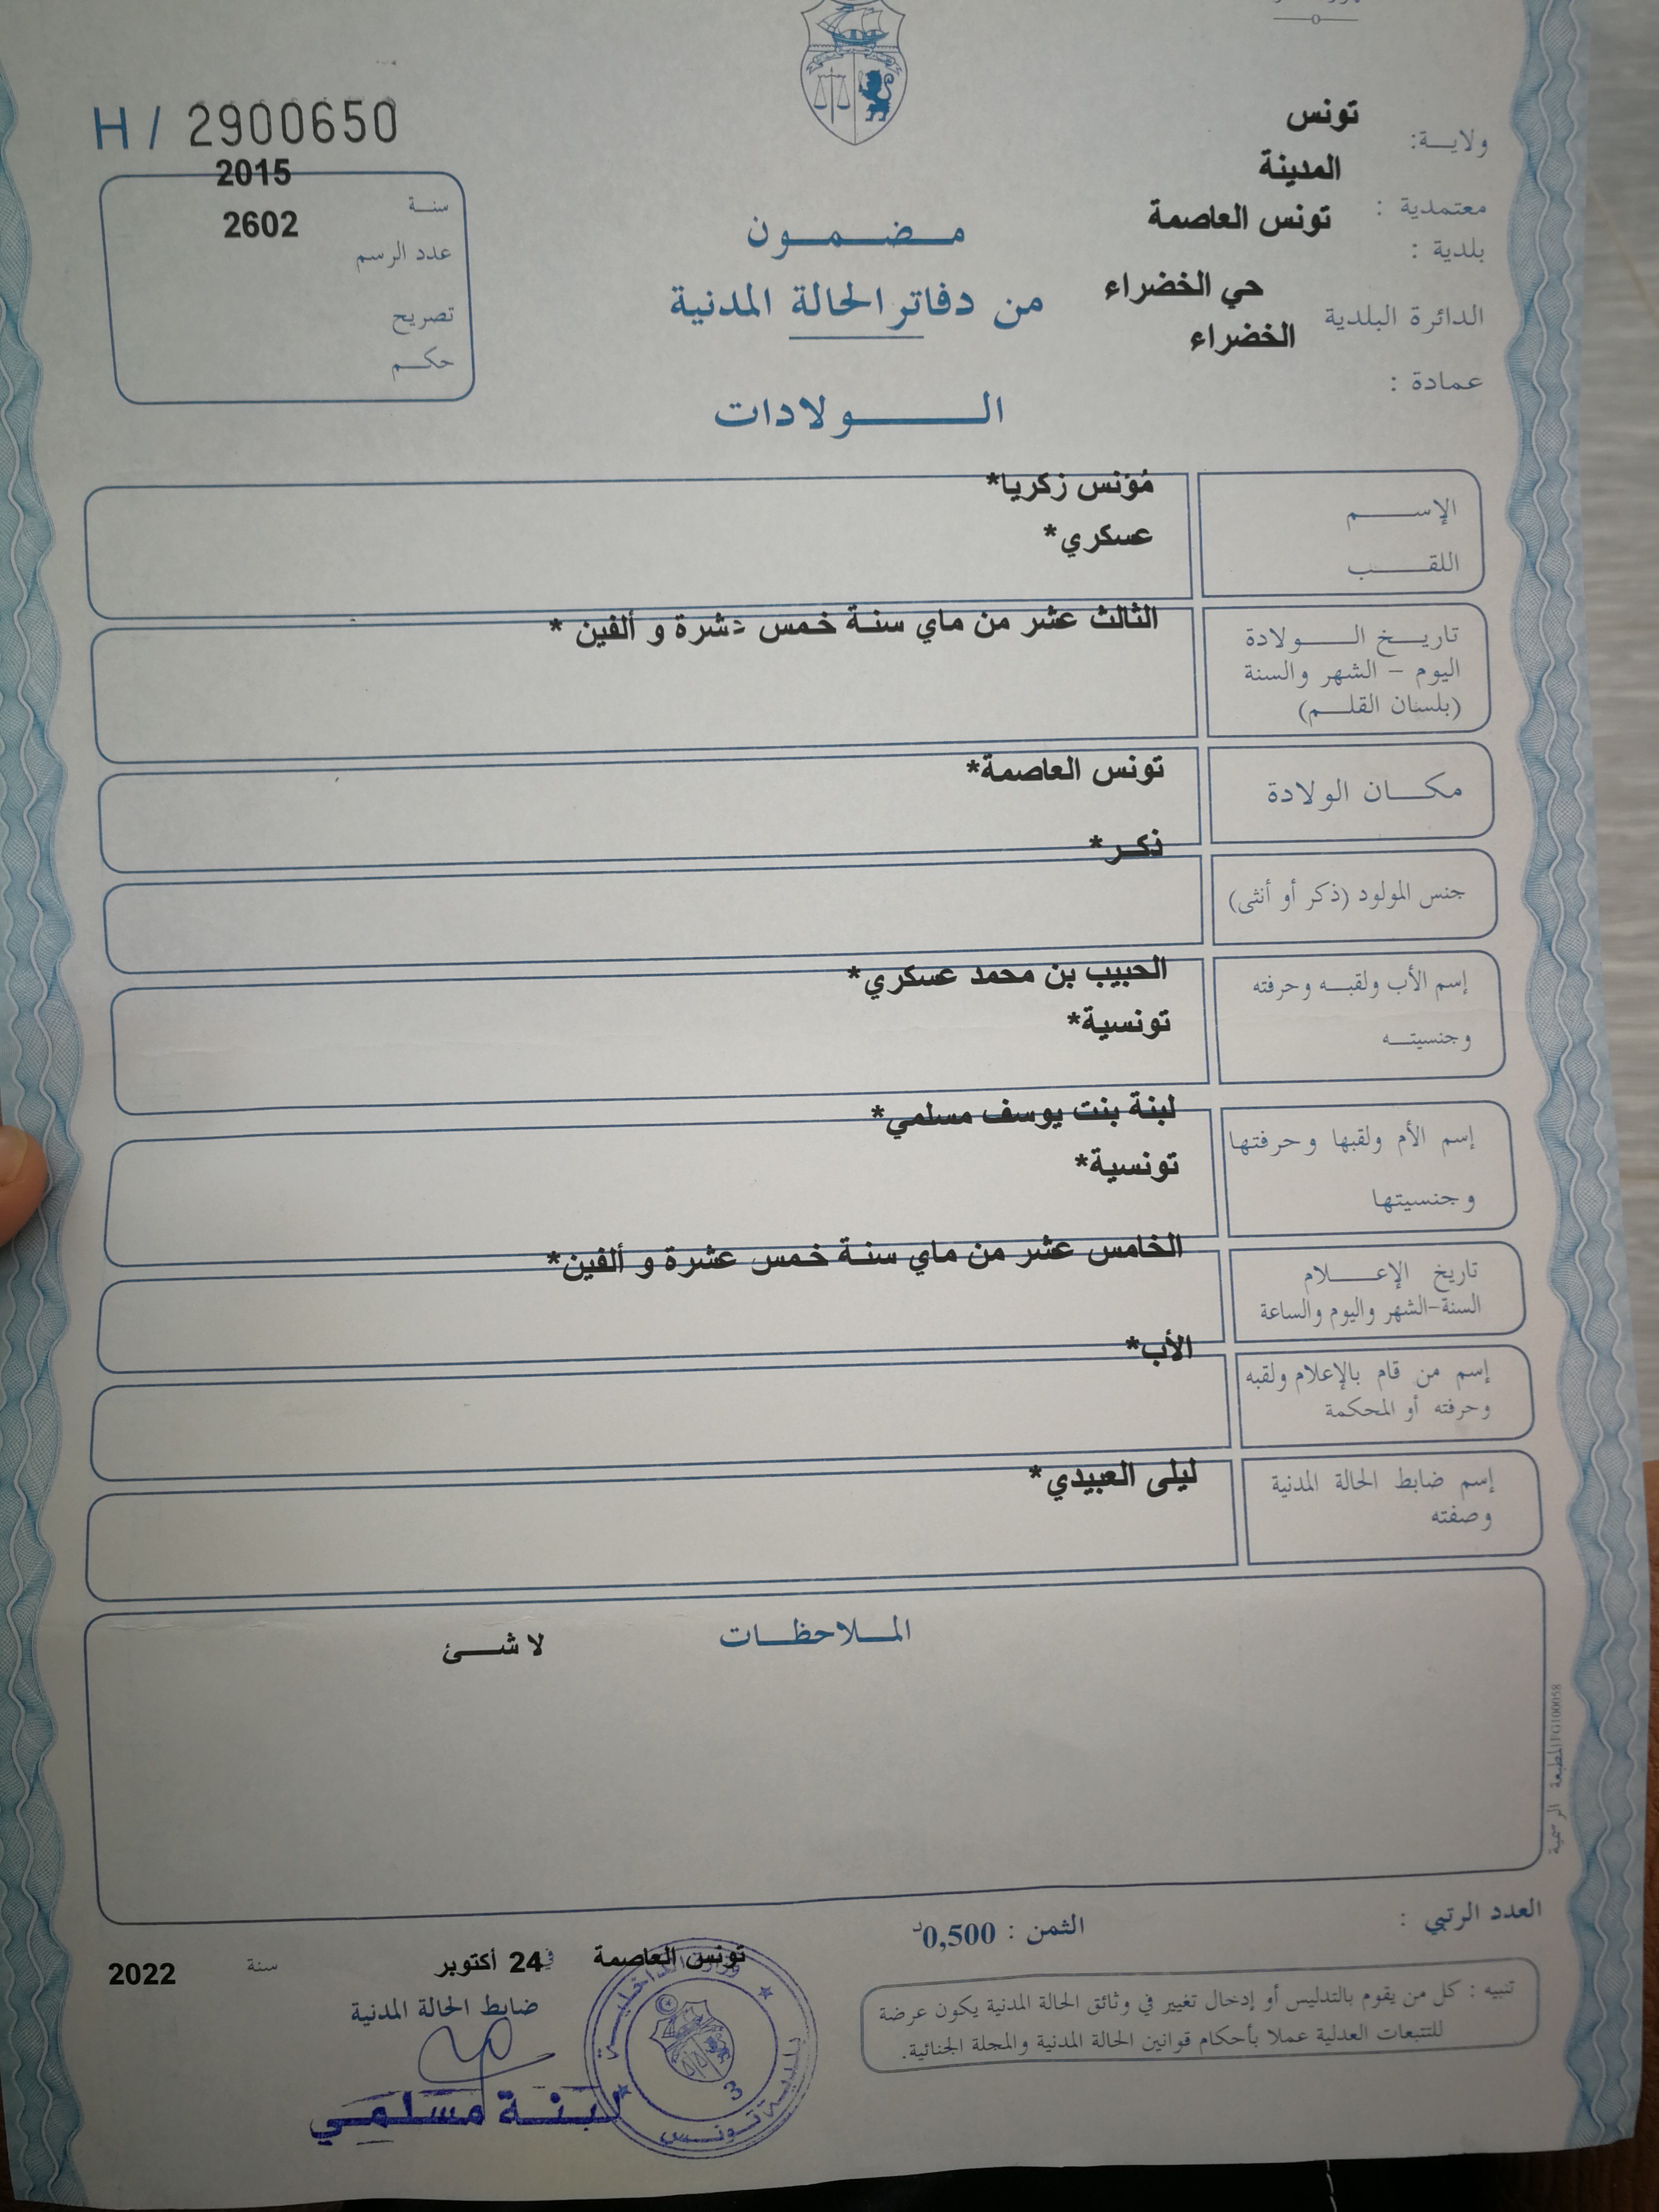 H / 2900650
2015
سنة
2602
عدد الرسم
تصريح
حكم
ولاية: تونس
المدينة
معتمدية :
تونس العاصمة
بلدية :
حي الخضراء
الدائرة البلدية
الخضراء
عمادة :
مضمون
من دفاتر الحالة المدنية
الولادات
الإسم
مُؤنس زكريا*
اللقب
عسكري*
تاريخ الولادة
اليوم - الشهر والسنة
(بلسان القلم)
الثالث عشر من ماي سنة خمس عشرة و ألفين *
مكان الولادة
تونس العاصمة*
جنس المولود (ذكر أو أنثى)
ذكر*
إسم الأب ولقبه وحرفته
وجنسيته
الحبيب بن محمد عسكري*
تونسية*
إسم الأم ولقبها وحرفتها
وجنسيتها
لبنة بنت يوسف مسلمي*
تونسية*
تاريخ الإعلام
السنة-الشهر واليوم والساعة
الخامس عشر من ماي سنة خمس عشرة و ألفين*
إسم من قام بالإعلام ولقبه
وحرفته أو المحكمة
الأب*
إسم ضابط الحالة المدنية
وصفته
ليلى العبيدي*
الملاحظات
لا شئ
المطبعة الرسمية
العدد الرتبي :
الثمن : 0,500د
تنبيه : كل من يقوم بالتدليس أو إدخال تغيير في وثائق الحالة المدنية يكون عرضة
للتتبعات العدلية عملا بأحكام قوانين الحالة المدنية والمجلة الجنائية.
تونس العاصمة في 24 أكتوبر سنة 2022
ضابط الحالة المدنية
لبنة مسلمي
وزارة الداخلية
بلدية تونس
3